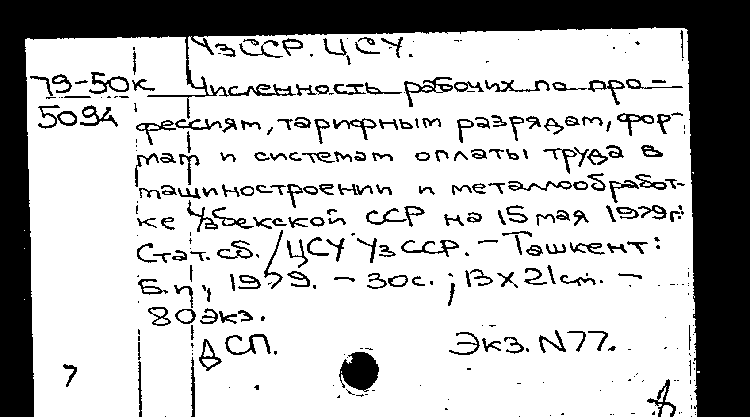 УзССР. ЦСУ.
79-50к Численность рабочих по про-
5094 фессиям, тарифным разрядам, фор-
мам и системам оплаты труда в
машиностроении и металлообработ-
ке Узбекской ССР на 15 мая 1979г.:
Стат. сб. / ЦСУ УзССР. – Ташкент:
Б.и., 1979. – 30с.; 13 X 21 см. –
80 экз.
ДСП. Экз. N77.
7